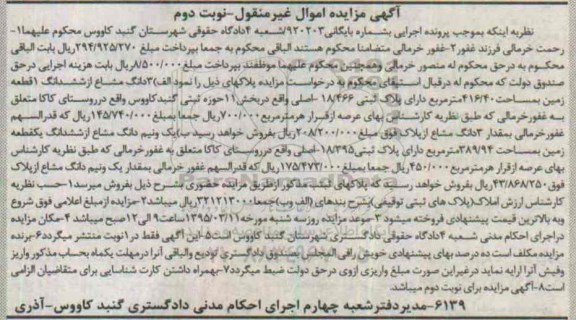 آگهی مزایده اموال غیرمنقول-نوبت دوم
نظریه اینکه بموجب پرونده اجرایی بشماره بایگانی۹۲۰۲۰۳/شعبه ۴دادگاه حقوقی شهرستان گنبد کاووس محکوم علیهما۱-
رحمت خرمالی فرزند غفور۲-غفور خرمالی متضامنا محکوم هستند الباقی محکوم به جمعا بپرداخت مبلغ ۲۹۴/۹۲۵/۲۷۰ریال بابت الباقی
محکوم به درحق محکوم له منصور خرمالی وهمچنین محکوم علیهما موظفند بپرداخت مبلغ۸/۵۰۰/۰۰۰ریال بابت هزینه اجرایی درحق
صندوق دولت که محکوم له درقبال استیفای محکوم به درخواست مزایده پلاکهای ذیل را نمود الف)۳دانگ مشاع ازششدانگ ۱قطعه
زمین بمساحت۴۱۶/۴۰مترمربع دارای پلاک ثبتی ۱۸۴۶۶-اصلی واقع دربخش۱۱حوزه ثبتی گنبدکاووس واقع درروستای کاکا متعلق
به غفورخرمالی که طبق نظریه کارشناس بهای عرصه ازقرار هرمترمربع ۷۰۰/۰۰۰ریال جمعا بمبلغ۱۴۵/۷۴۰/۰۰۰ریال که قدرالسهم
غفورخرمالی بمقدار ۳دانگ مشاع ازپلاک فوق مبلغ۲۰۸/۲۰۰/۰۰۰ریال بفروش خواهد رسید ب)یک ونیم دانگ مشاع ازششدانگ یکقطعه
زمین بمساحت ۳۸۹/۹۴مترمربع دارای پلاک ثبتی۱۸۳۹۵-اصلی واقع درروستای کاکا متعلق به غفورخرمالی که طبق نظریه کارشناس
بهای عرصه ازقرار هرمترمربع۴۵۰/۰۰۰ریال جمعا بمبلغ۱۷۵/۴۷۳/۰۰۰ریال که قدرالسهم غفور خرمالی بمقدار یک ونیم دانگ مشاع ازپلاک
فوق ۴۳/۸۶۸/۲۵۰ریال بفروش خواهد رسید که پلاکهای ثبتی مذکور ازطریق مزایده حضوری بشرح ذیل بفروش میرسد۱-حسب نظریه
کارشناس ارزش املاک(پلاک های ثبتی توقیفی)بشرح بندهای (الف وب)جمعا۳۲۱۲۱۳۰۰۰ریال میباشد۲-مزایده ازمبلغ اعلامی فوق شروع
وبه بالاترین قیمت پیشنهادی فروخته میشود ۳-موعد مزایده روزسه شنبه مورخه۱۳۹۵/۰۳/۱۱ساعت۹ الی۱۲صبح میباشد ۴-مکان مزایده
دراجرای احکام مدنی شعبه ۴دادگاه حقوقی دادگستری شهرستان گنبد کاووس است۵-این آگهی فقط در۱نوبت منتشر میگردد۶-برنده
مزایده مکلف است ده درصد بهای پیشنهادی خویش رافی المجلس بصندوق دادگستری تودیع والباقی آنرا درمهلت یکماه بحساب مذکور واریز
وفیش آنرا ارایه نماید درغیراین صورت مبلغ واریزی ازوی درحق دولت ضبط میگردد۷-بهمراه داشتن کارت شناسایی برای متقاضیان الزامی
است۸-آگهی مزایده برای نوبت دوم میباشد.
۶۱۳۹-مدیردفترشعبه چهارم اجرای احکام مدنی دادگستری گنبد کاووس-آذری